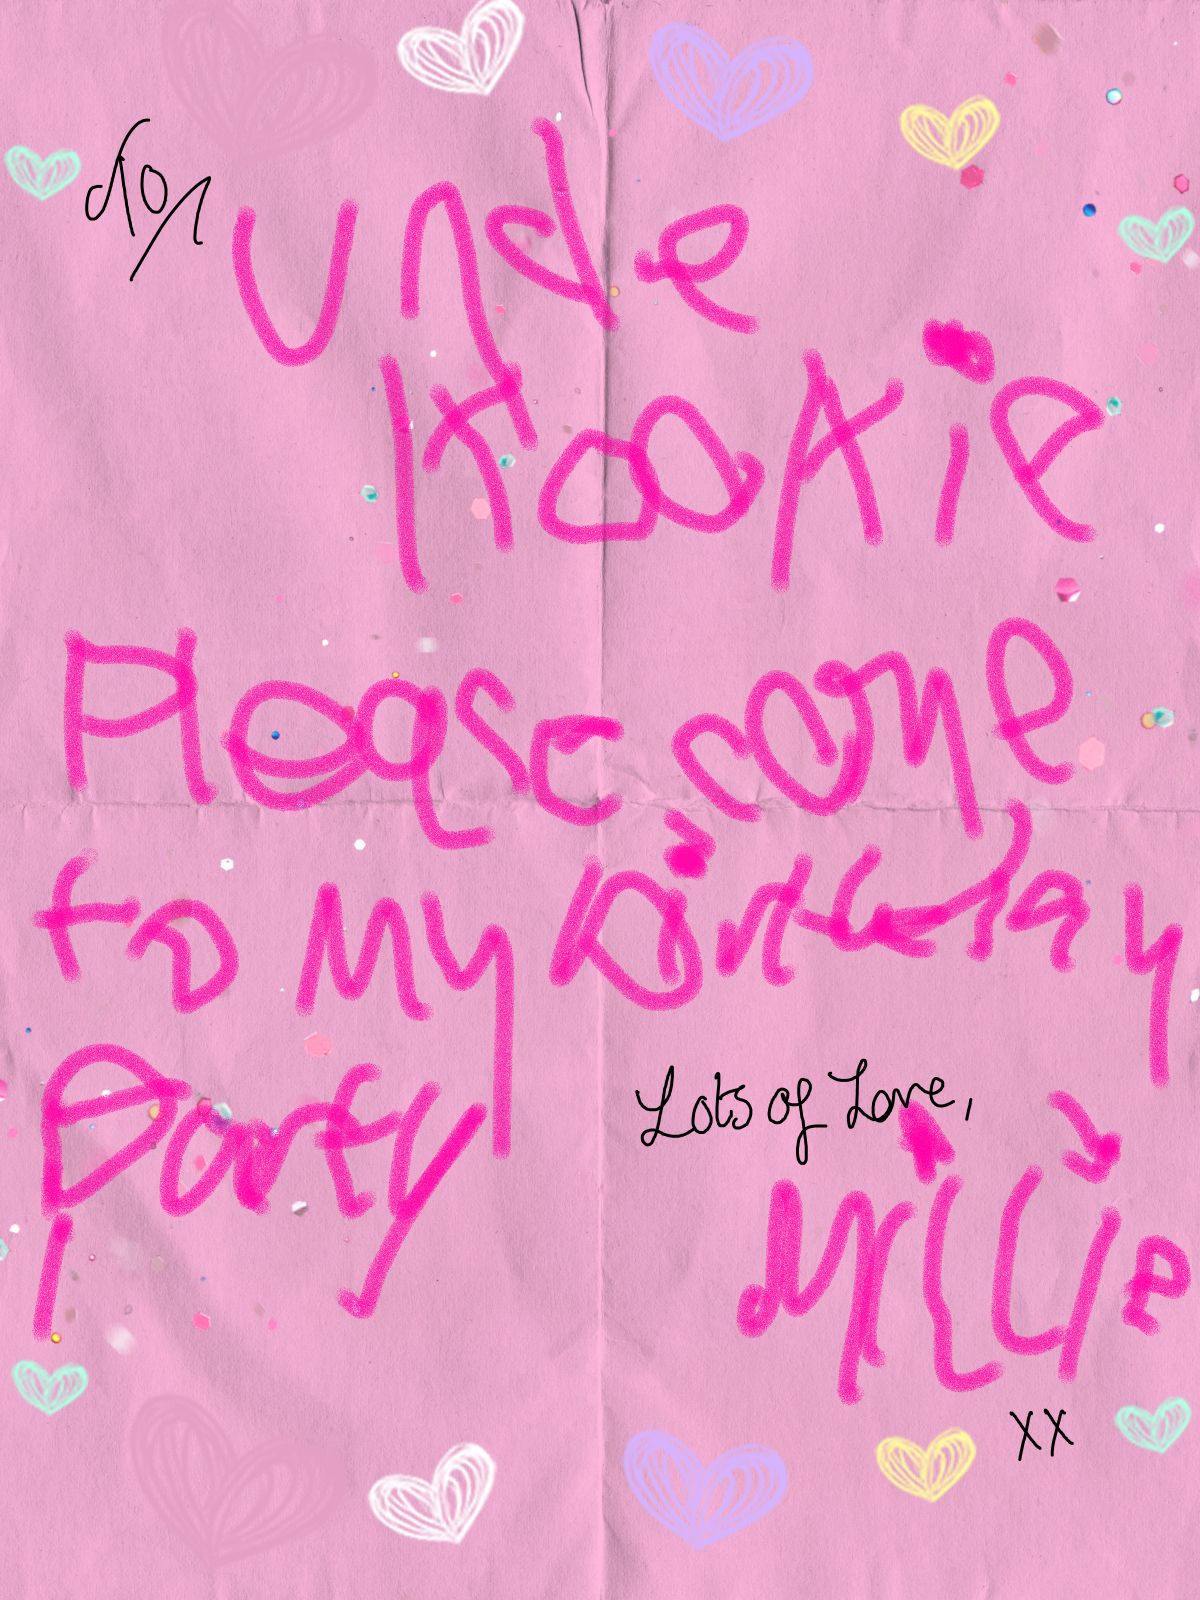 for
Uncle
Hookie
Please come
to my birthday
Party
Lots of Love,
Millie
xx